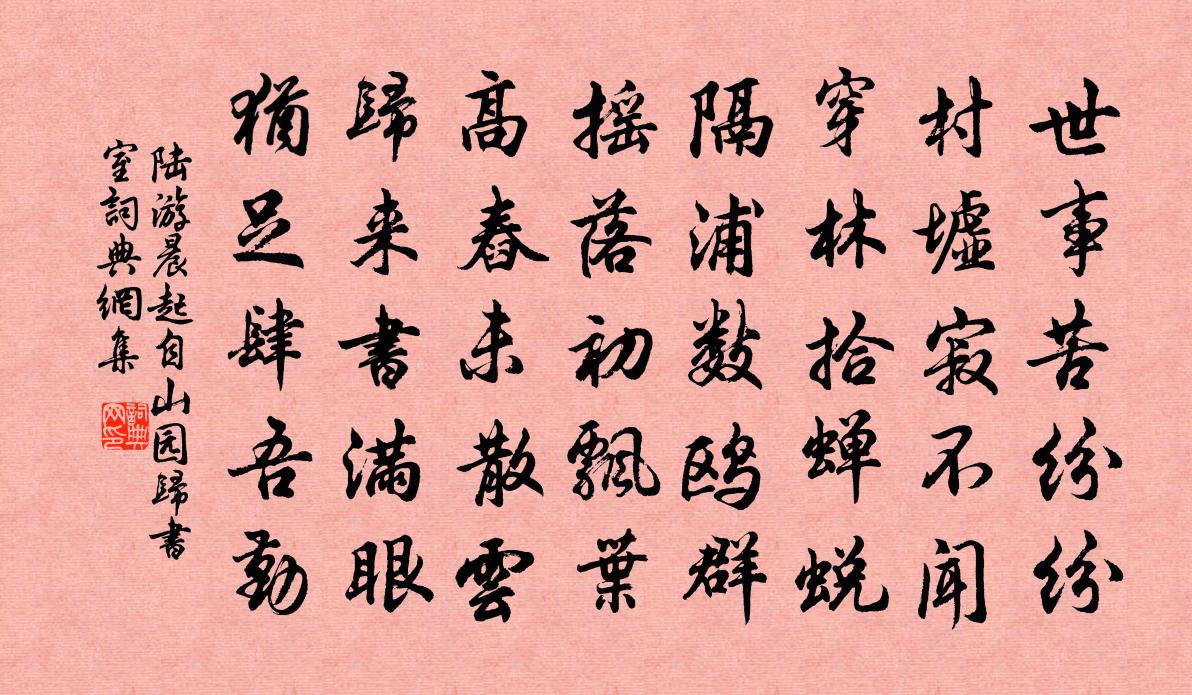 世事苦纷纷
村墟寂不闻
穿林拾蝉蜕
隔浦数鸥群
摇落初飘葉
高舂未散雲
歸来書满眼
猶足肆吾勤
陆游晨起自山园歸書
室詞典網集
詞典网印